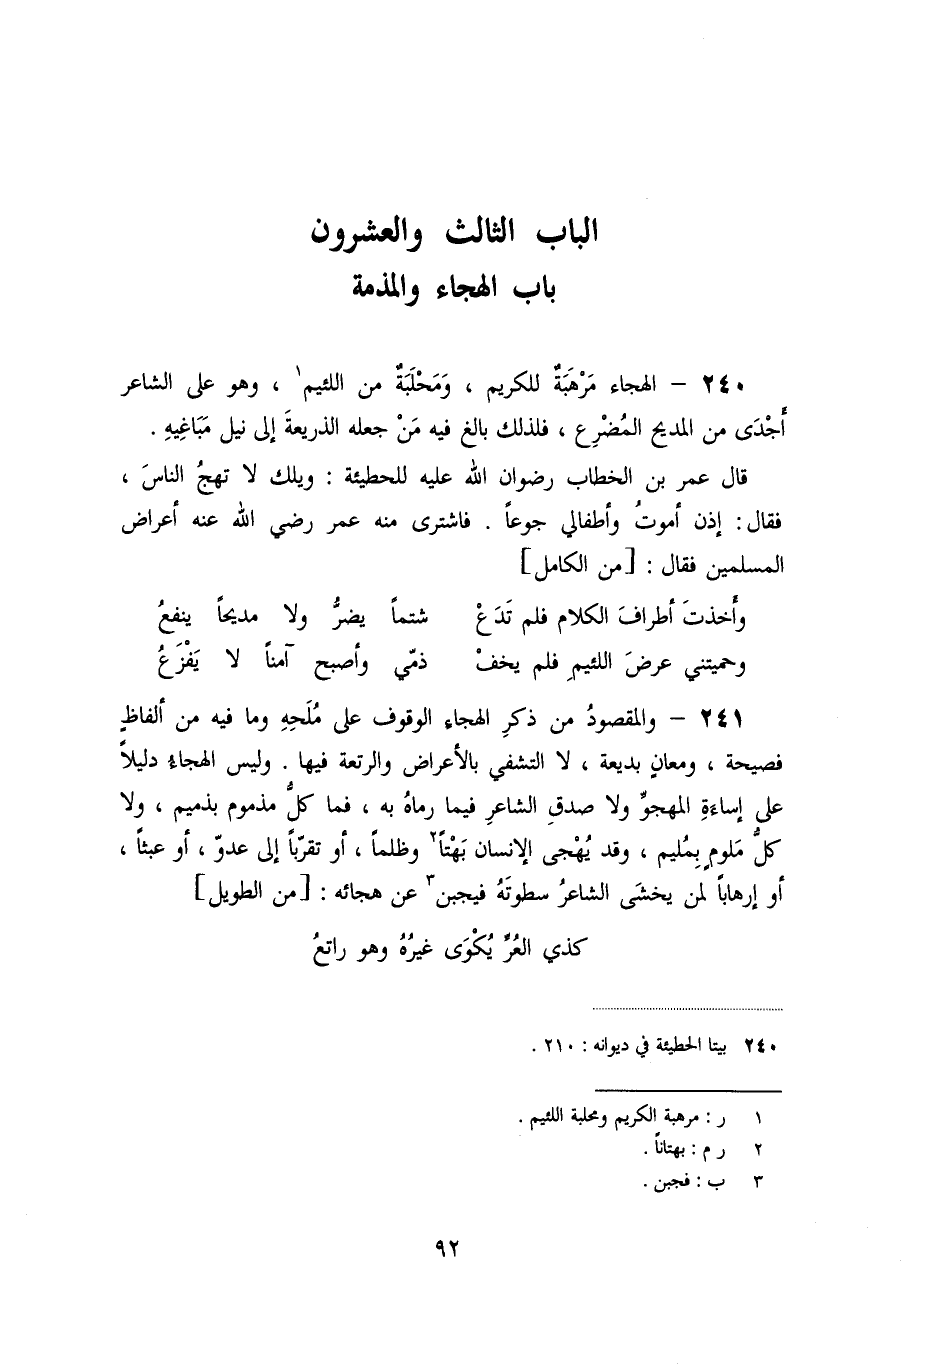 الباب الثالث والعشرون
باب الهجاء والمذمة
٢٤٠ – الهجاء مَرْهَبَةٌ للكريم ، وَمَحْلَبَةٌ من اللئيم١ ، وهو على الشاعر
أَجْدَى من المديح المُضْرِع ، فلذلك بالغ فيه مَنْ جعله الذريعةَ إلى نيل مَبَاغِيهِ .
قال عمر بن الخطاب رضوان الله عليه للحطيئة : ويلك لا تهجُ الناسَ ،
فقال : إذن أموتُ وأطفالي جوعاً . فاشترى منه عمر رضي الله عنه أعراض
المسلمين فقال : [من الكامل]
وأَخذتَ أطرافَ الكلام فلم تَدَعْ شتماً يضرُّ ولا مديحاً ينفعُ
وحميتني عرضَ اللئيمِ فلم يخفْ ذمّي وأصبح آمناً لا يَفْزَعُ
٢٤١ – والمقصودُ من ذكرِ الهجاء الوقوف على مُلَحِهِ وما فيه من ألفاظٍ
فصيحة ، ومعانٍ بديعة ، لا التشفي بالأعراض والرتعة فيها . وليس الهجاءُ دليلاً
على إساءةِ المهجوِّ ولا صدقِ الشاعرِ فيما رماهُ به ، فما كلُّ مذموم بذميم ، ولا
كلُّ مَلومٍ بِمُليم ، وقد يُهْجى الإنسان بَهْتاً٢ وظلماً ، أو تقرّباً إلى عدوّ ، أو عبثاً ،
أو إرهاباً لمن يخشَى الشاعرُ سطوتَهُ فيجبن٣ عن هجائه : [من الطويل]
كذي العُرِّ يُكْوَى غيرُهُ وهو راتعُ
٢٤٠ بيتا الحطيئة في ديوانه : ٢١٠ .
١ ر : مرهبة الكريم ومحلبة اللئيم .
٢ ر م : بهتاناً .
٣ ب : فجبن .
٩٢